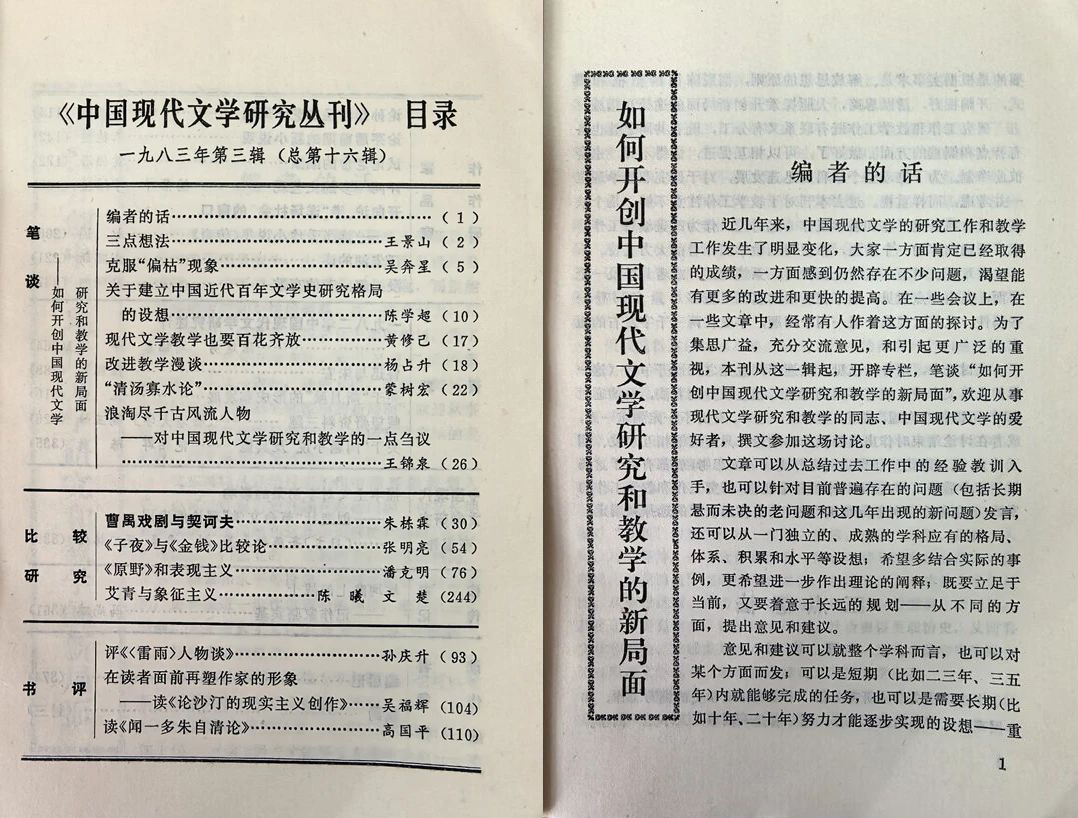 《中国现代文学研究丛刊》 目录
一九八三年第三辑（总第十六辑）
笔谈
——如何开创中国现代文学
研究和教学的新局面
编者的话……………………………………（1）
三点想法………………………………王景山（2）
克服“偏枯”现象……………………吴奔星（5）
关于建立中国近代百年文学史研究格局
的设想………………………………陈学超（10）
现代文学教学也要百花齐放…………黄修己（17）
改进教学漫谈…………………………杨占升（18）
“清汤寡水论”………………………蒙树宏（22）
浪淘尽千古风流人物
——对中国现代文学研究和教学的一点刍议
………………………………………王锦泉（26）
比较
研究
曹禺戏剧与契诃夫……………………朱栋霖（30）
《子夜》与《金钱》比较论…………张明亮（54）
《原野》和表现主义…………………潘克明（76）
艾青与象征主义…………陈 曦 文 楚（244）
书评
评《〈雷雨〉人物谈》………………孙庆升（93）
在读者面前再塑作家的形象
——读《论沙汀的现实主义创作》……吴福辉（104）
读《闻一多朱自清论》………………高国平（110）
如何开创中国现代文学研究和教学的新局面
编者的话
近几年来，中国现代文学的研究工作和教学
工作发生了明显变化，大家一方面肯定已经取得
的成绩，一方面感到仍然存在不少问题，渴望能
有更多的改进和更快的提高。在一些会议上，在
一些文章中，经常有人作着这方面的探讨。为了
集思广益，充分交流意见，和引起更广泛的重
视，本刊从这一辑起，开辟专栏，笔谈“如何开
创中国现代文学研究和教学的新局面”，欢迎从事
现代文学研究和教学的同志、中国现代文学的爱
好者，撰文参加这场讨论。
文章可以从总结过去工作中的经验教训入
手，也可以针对目前普遍存在的问题（包括长期
悬而未决的老问题和这几年出现的新问题）发言，
还可以从一门独立的、成熟的学科应有的格局、
体系、积累和水平等设想；希望多结合实际的事
例，更希望进一步作出理论的阐释；既要立足于
当前，又要着意于长远的规划——从不同的方
面，提出意见和建议。
意见和建议可以就整个学科而言，也可以对
某个方面而发；可以是短期（比如二三年、三五
年）内就能够完成的任务，也可以是需要长期（比
如十年、二十年）努力才能逐步实现的设想——重
1